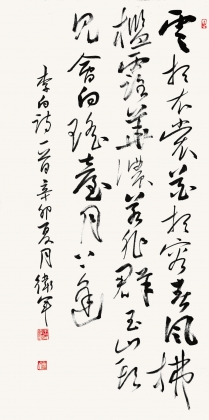 雲想衣裳花想容春風拂
檻露華濃若非群玉山頭
見會向瑤臺月下逢
李白詩一首辛卯夏月